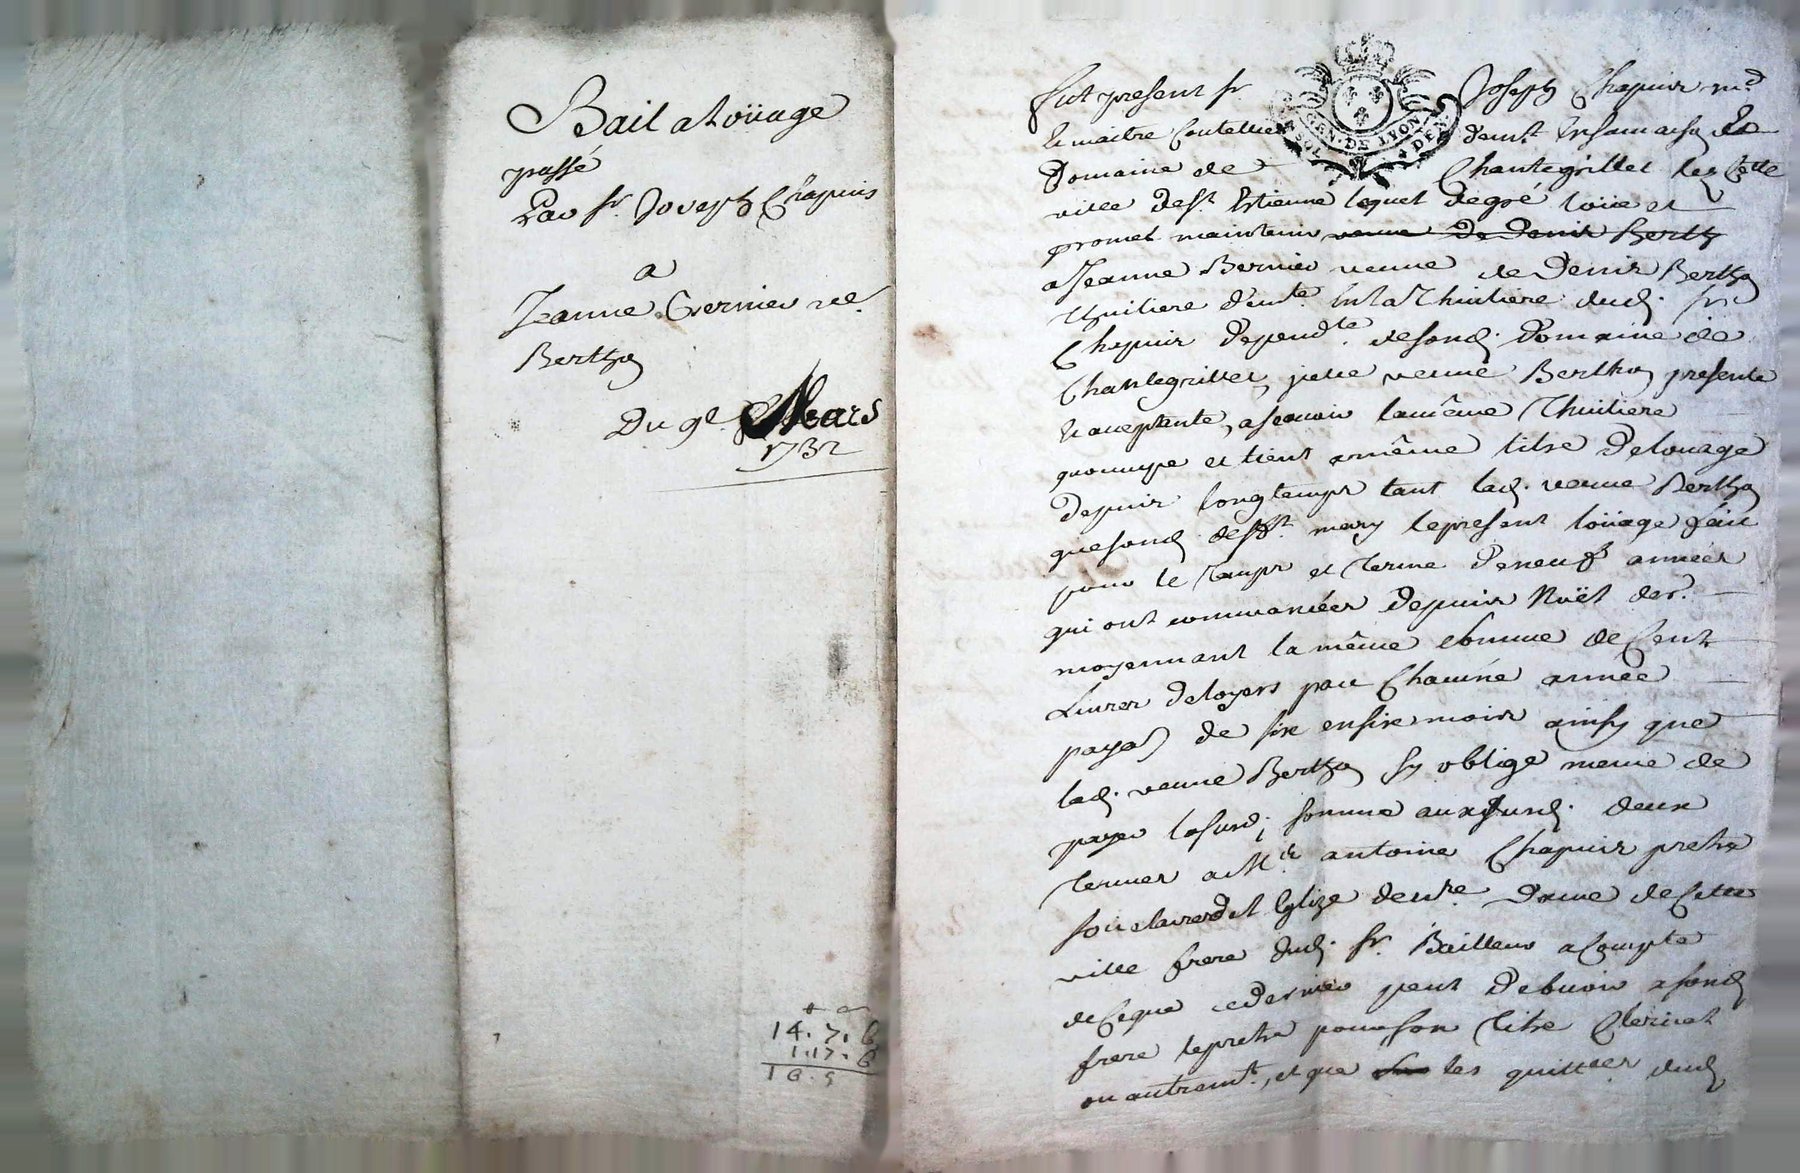 Bail a Loüage
passé
Par sr. Joseph Chapuis
a
Jeanne Grenier ve.
Berthon
Du 9e. Mars
1732
14. 7. 6
1. 17. 6
16. 5
GEN. DE LYON
Fut present sr. Joseph Chapuis md.
et maitre Coutellier demt. en sa maison et
Domaine de Chantegrillet les cette
ville de st. Estienne lequel de gré loüe et
promet maintenir veuve de Denis Berth
a Jeanne Bernier veuve de Denis Berthon
Thuiliere demte. en la Thuiliere dud. sr.
Chapuis dependte. de sond. Domaine de
Chantegrillet, jcelle veuve Berthon presente
et acceptante, ascavoir la même Thuiliere
quoccupe et tient a même titre de louage
depuis longtemps tant lad. veuve Berthon
que sond. deft. mary le present loüage fait
pour le temps et terme de neuf années
qui ont commancées depuis Noël der.
moyennant la même somme de Cent
Livres de loyers par Chacune année
payab de six en six mois ainsy que
lad. veuve Berthon sy oblige meme de
payer la susd. somme aux susd. deux
termes a Mre. antoine Chapuis pretre
societaire en l'Eglize de nre. Dame de Cette
ville frere dud. sr. Bailleur a Compte
de Ceque ce dernier peut debvoir a sond.
frere le pretre pour son titre Clerical
ou autremt., et que les quittces dud.